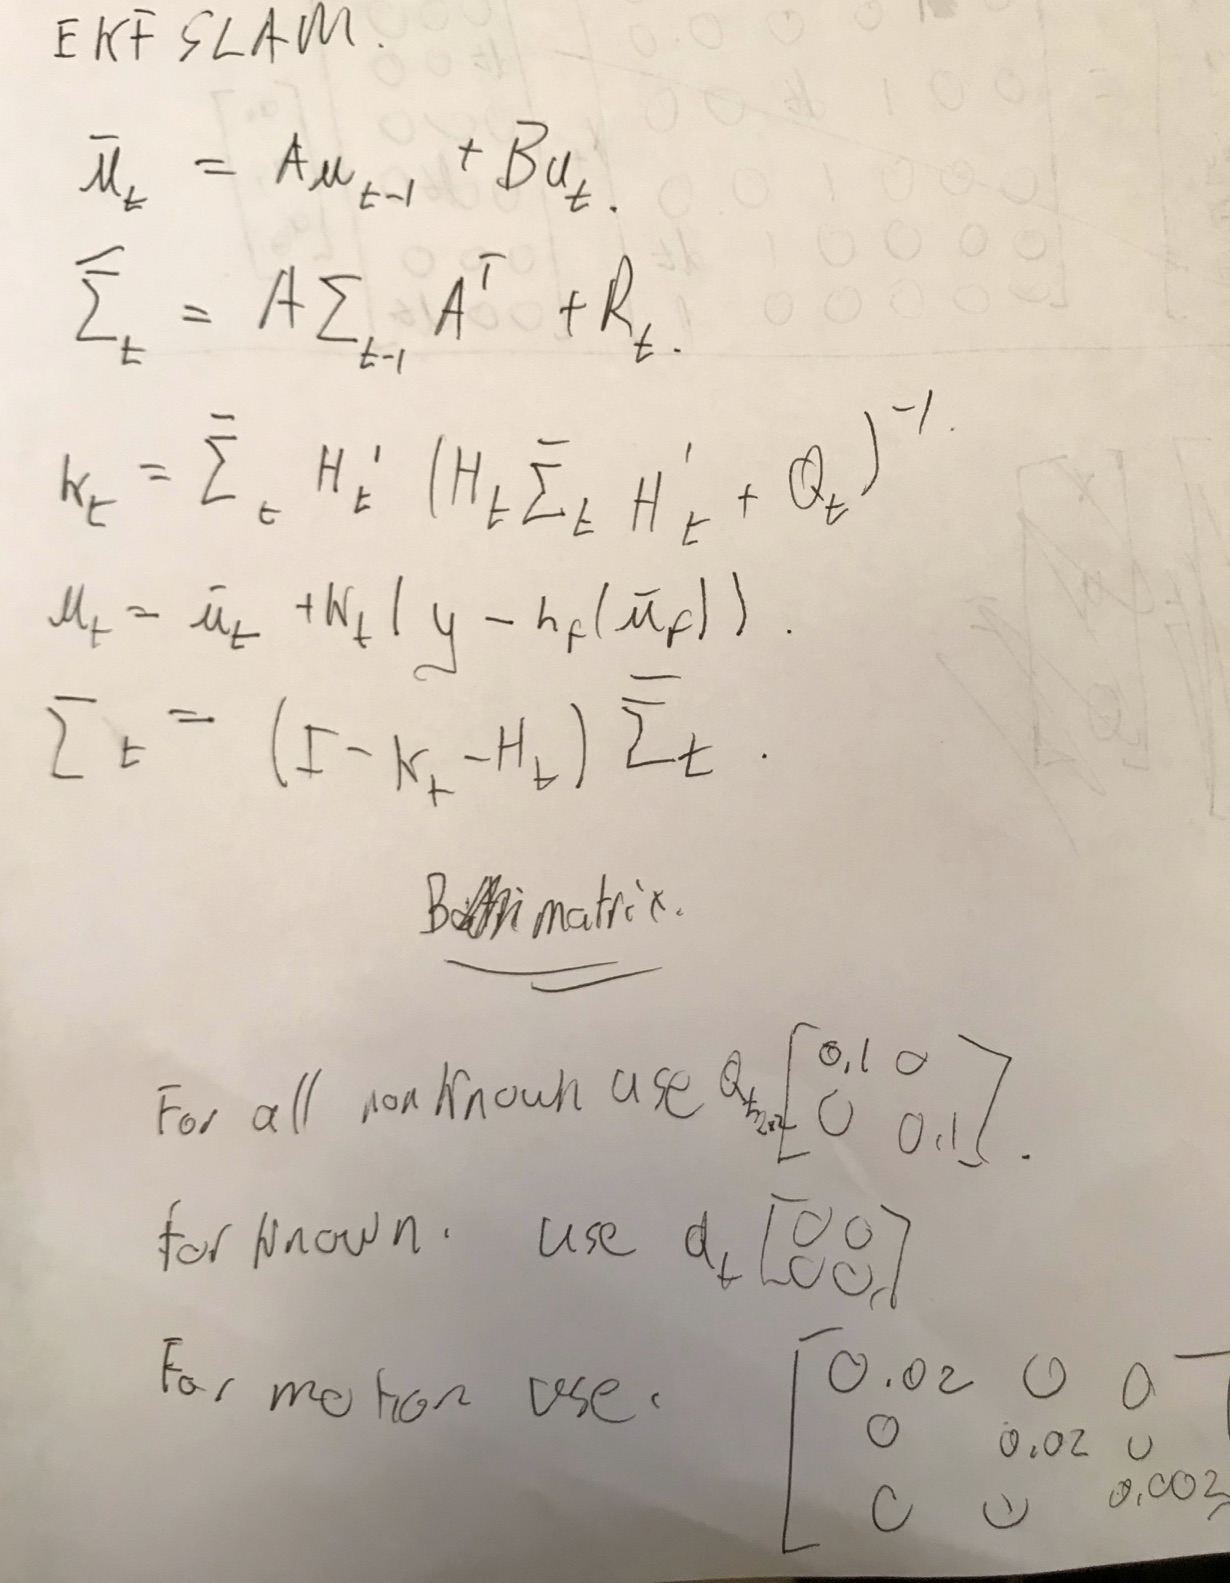 EKF SLAM.
μ̄_t = Aμ_{t-1} + Bu_t.
Σ̄_t = AΣ_{t-1} A^T + R_t.
K_t = Σ̄_t H_t' (H_t Σ̄_t H_t' + Q_t)^{-1}.
μ_t = μ̄_t + K_t ( y - h_t(μ̄_t) ) .
Σ_t = (I - K_t - H_t) Σ̄_t .
matrix.
For all non known use Q_t 2x2 [0.1 0
0 0.1] .
for known. use Q_t [0 0
0 0]
For motion use. [0.02 0 0
0 0.02 0
0 0 0.002]